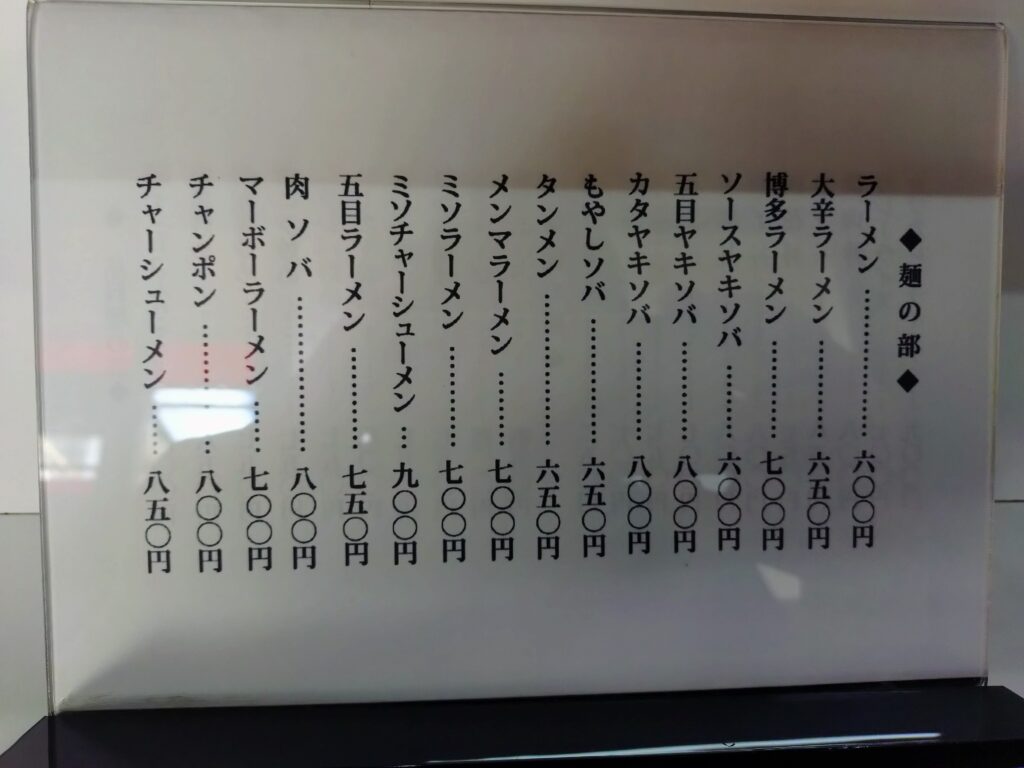 ◆麺の部◆
ラーメン…………………六〇〇円
大辛ラーメン…………六五〇円
博多ラーメン…………七〇〇円
ソースヤキソバ………六〇〇円
五目ヤキソバ…………八〇〇円
カタヤキソバ…………八〇〇円
もやしソバ……………六五〇円
タンメン………………六五〇円
メンマラーメン………七〇〇円
ミソラーメン…………七〇〇円
ミソチャーシューメン…九〇〇円
五目ラーメン…………七五〇円
肉ソバ…………………八〇〇円
マーボーラーメン……七〇〇円
チャンポン……………八〇〇円
チャーシューメン……八五〇円